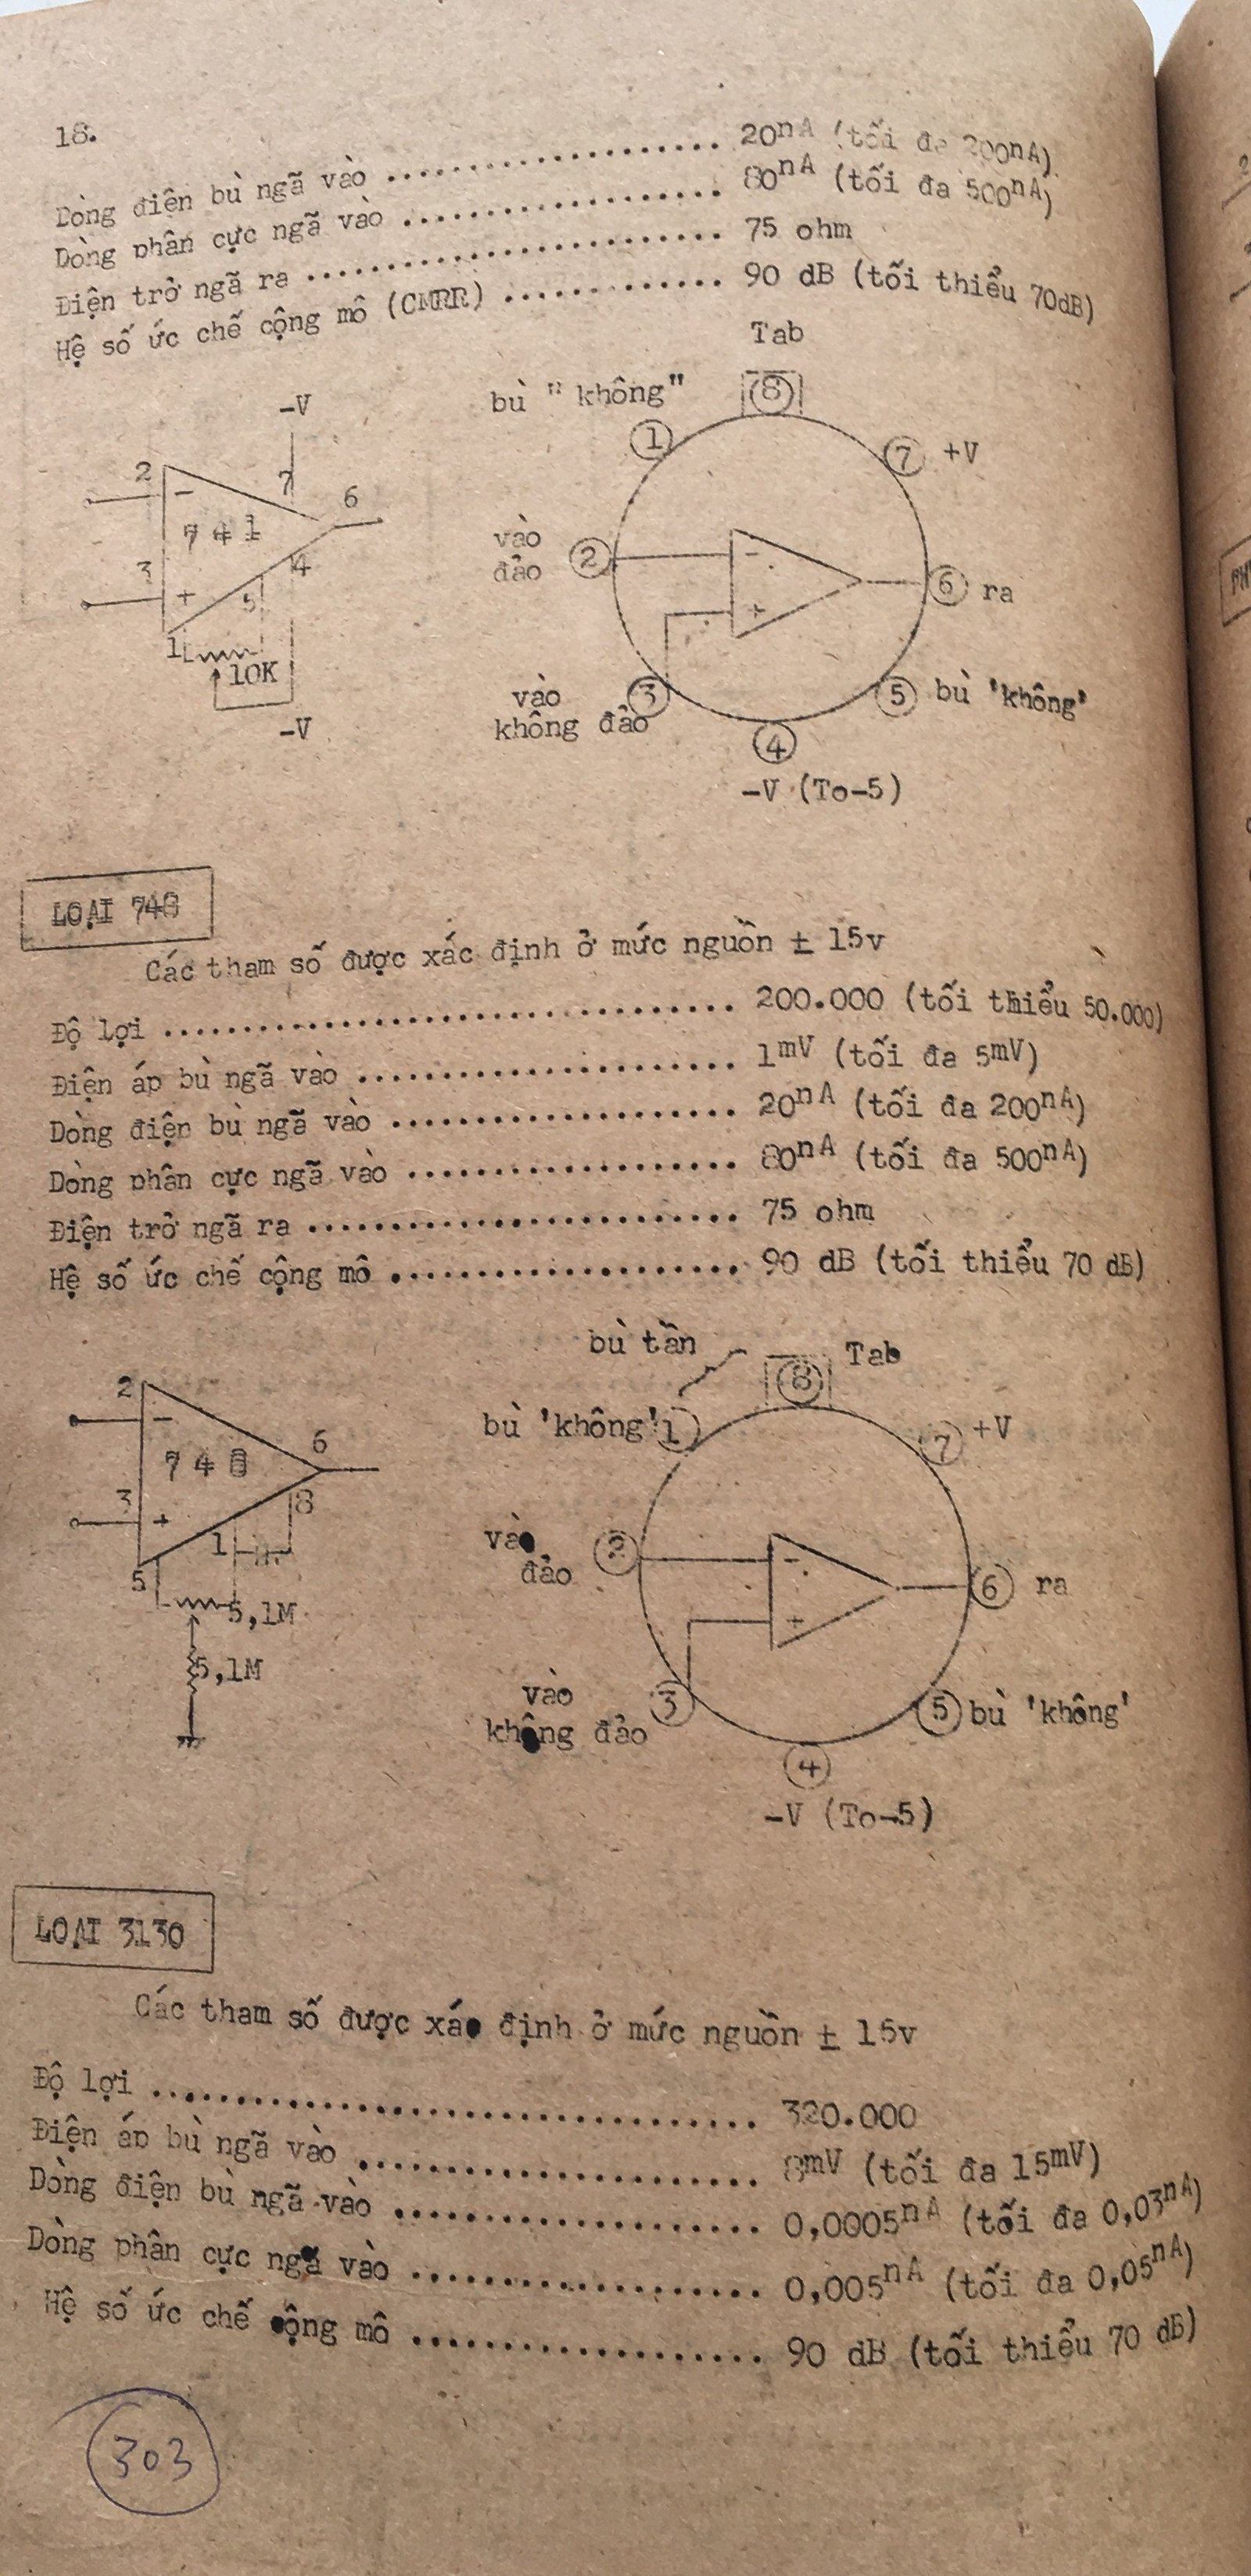 18.
Dòng điện bù ngã vào .................... 20nA (tối đa 200nA)
Dòng phân cực ngã vào .................... 80nA (tối đa 500nA)
Điện trở ngã ra .................... 75 ohm
Hệ số ức chế cộng mô (CMRR) ............. 90 dB (tối thiểu 70dB)
Tab
bù "không"
8
-V
1
7 +V
2
-
7
6
741
vào
đảo
2
-
3
4
6 ra
+
5
+
1
10K
vào
không đảo
3
5 bù 'không'
-V
4
-V (To-5)
LOẠI 748
Các tham số được xác định ở mức nguồn ± 15v
Độ lợi .................... 200.000 (tối thiểu 50.000)
Điện áp bù ngã vào .................... 1mV (tối đa 5mV)
Dòng điện bù ngã vào .................... 20nA (tối đa 200nA)
Dòng phân cực ngã vào .................... 80nA (tối đa 500nA)
Điện trở ngã ra .................... 75 ohm
Hệ số ức chế cộng mô .................... 90 dB (tối thiểu 70 dB)
bù tần
8 Tab
2
bù 'không' 1
7 +V
-
6
748
3
8
+
1
vào
đảo
2
-
5
6 ra
5,1M
+
5,1M
vào
không đảo
3
5 bù 'không'
4
-V (To-5)
LOẠI 3130
Các tham số được xác định ở mức nguồn ± 15v
Độ lợi .................... 320.000
Điện áp bù ngã vào .................... 8mV (tối đa 15mV)
Dòng điện bù ngã vào .................... 0,0005nA (tối đa 0,03nA)
Dòng phân cực ngã vào .................... 0,005nA (tối đa 0,05nA)
Hệ số ức chế cộng mô .................... 90 dB (tối thiểu 70 dB)
303